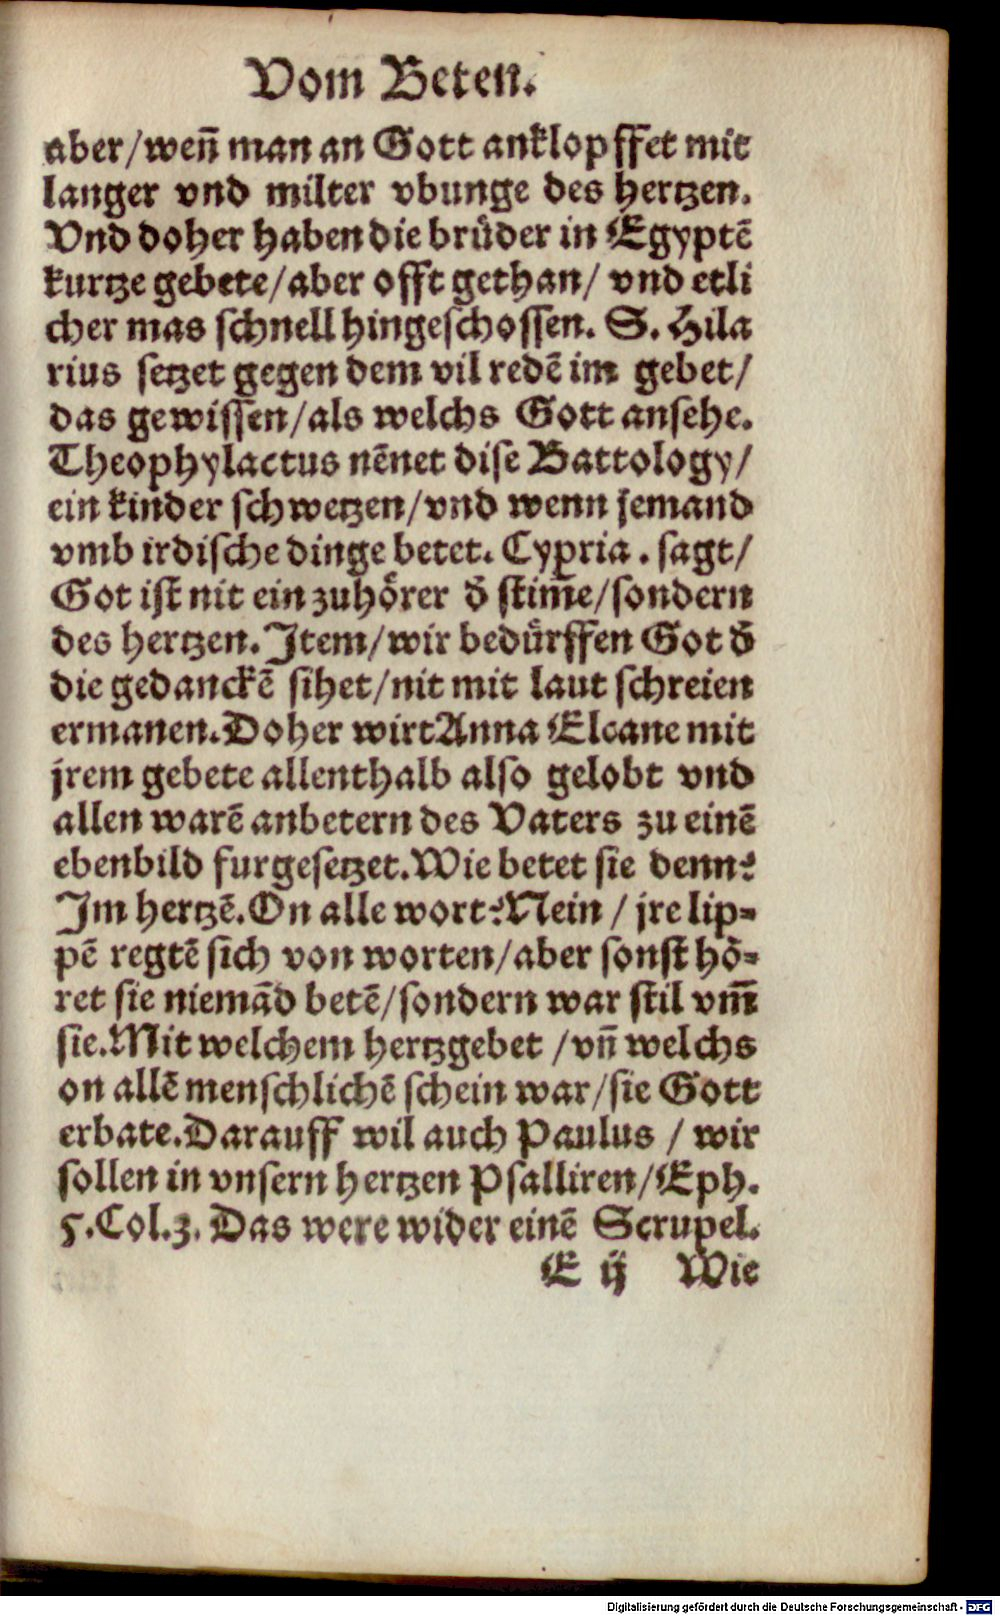 Vom Beten.
aber/wen̄ man an Gott anklopffet mit
langer vnd milter vbunge des hertzen.
Vnd doher haben die brůder in Egyptē
kurtze gebete/aber offt gethan/ vnd etli
cher mas schnell hingeschossen. S. Hila
rius setzet gegen dem vil redē im gebet/
das gewissen/als welchs Gott ansehe.
Theophylactus nēnet dise Battology/
ein kinder schwetzen/vnd wenn jemand
vmb irdische dinge betet. Cypria. sagt/
Got ist nit ein zuhoͤrer d̄ stim̄e/sondern
des hertzen. Item/wir beduͤrffen Got d̄
die gedanckē sihet/nit mit laut schreien
ermanen. Doher wirt Anna Elcane mit
jrem gebete allenthalb also gelobt vnd
allen warē anbetern des Vaters zu einē
ebenbild furgesetzet. Wie betet sie denn?
Im hertzē. On alle wort? Nein / jre lip⸗
pē regtē sich von worten/aber sonst hoͤ⸗
ret sie niemād betē/sondern war stil vm̄
sie. Mit welchem hertzgebet /vn̄ welchs
on allē menschlichē schein war/sie Gott
erbate. Darauff wil auch Paulus / wir
sollen in vnsern hertzen Psalliren/Eph.
5. Col.3. Das were wider einē Scrupel.
E ij Wie
Digitalisierung gefördert durch die Deutsche Forschungsgemeinschaft - DFG